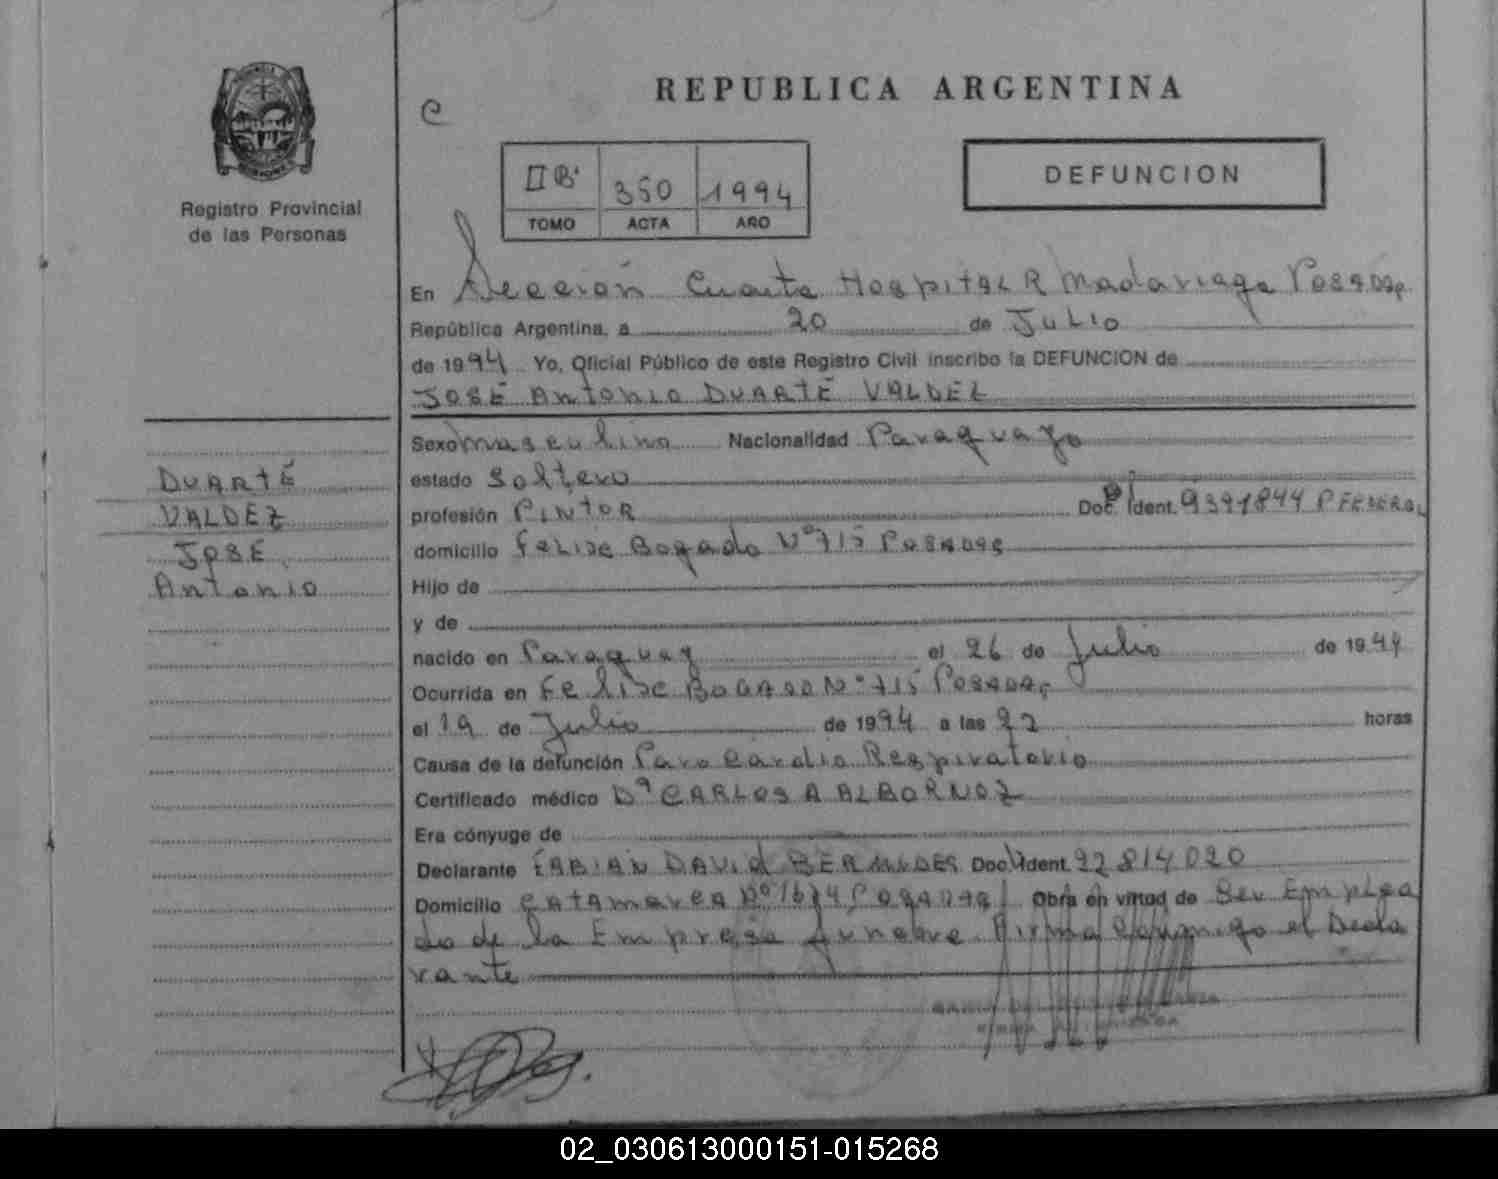 REPUBLICA ARGENTINA
C
Registro Provincial
de las Personas
II Bis 350 1994
TOMO ACTA AÑO
DEFUNCION
En Sección Cuarta Hospital R Madariaga Posadas
República Argentina, a 20 de JULIO
de 1994 Yo, Oficial Público de este Registro Civil inscribo la DEFUNCION de
JOSÉ Antonio DUARTÉ VALDEZ
Sexo masculino Nacionalidad Paraguayo
DUARTÉ
VALDEZ
JOSÉ
Antonio
estado Soltero
profesión PINTOR Doc. Ident. 9391844 P FEDERAL
domicilio FELISE Bogado Nº 715 POSADAS
Hijo de
y de
nacido en Paraguay el 26 de Julio de 1944
Ocurrida en FELISE BOGADO Nº 715 POSADAS
el 19 de Julio de 1994 a las 22 horas
Causa de la defunción Paro Cardio Respiratorio
Certificado médico Dº CARLOS A ALBORNOZ
Era cónyuge de
Declarante FABIAN DAVID BERMUDES Doc. Ident. 22 814 020
Domicilio CATAMARCA Nº 1674 POSADAS Obra en virtud de Ser Emplea
do de la Empresa funebre Firma Conmigo el Decla
rante
02_030613000151-015268